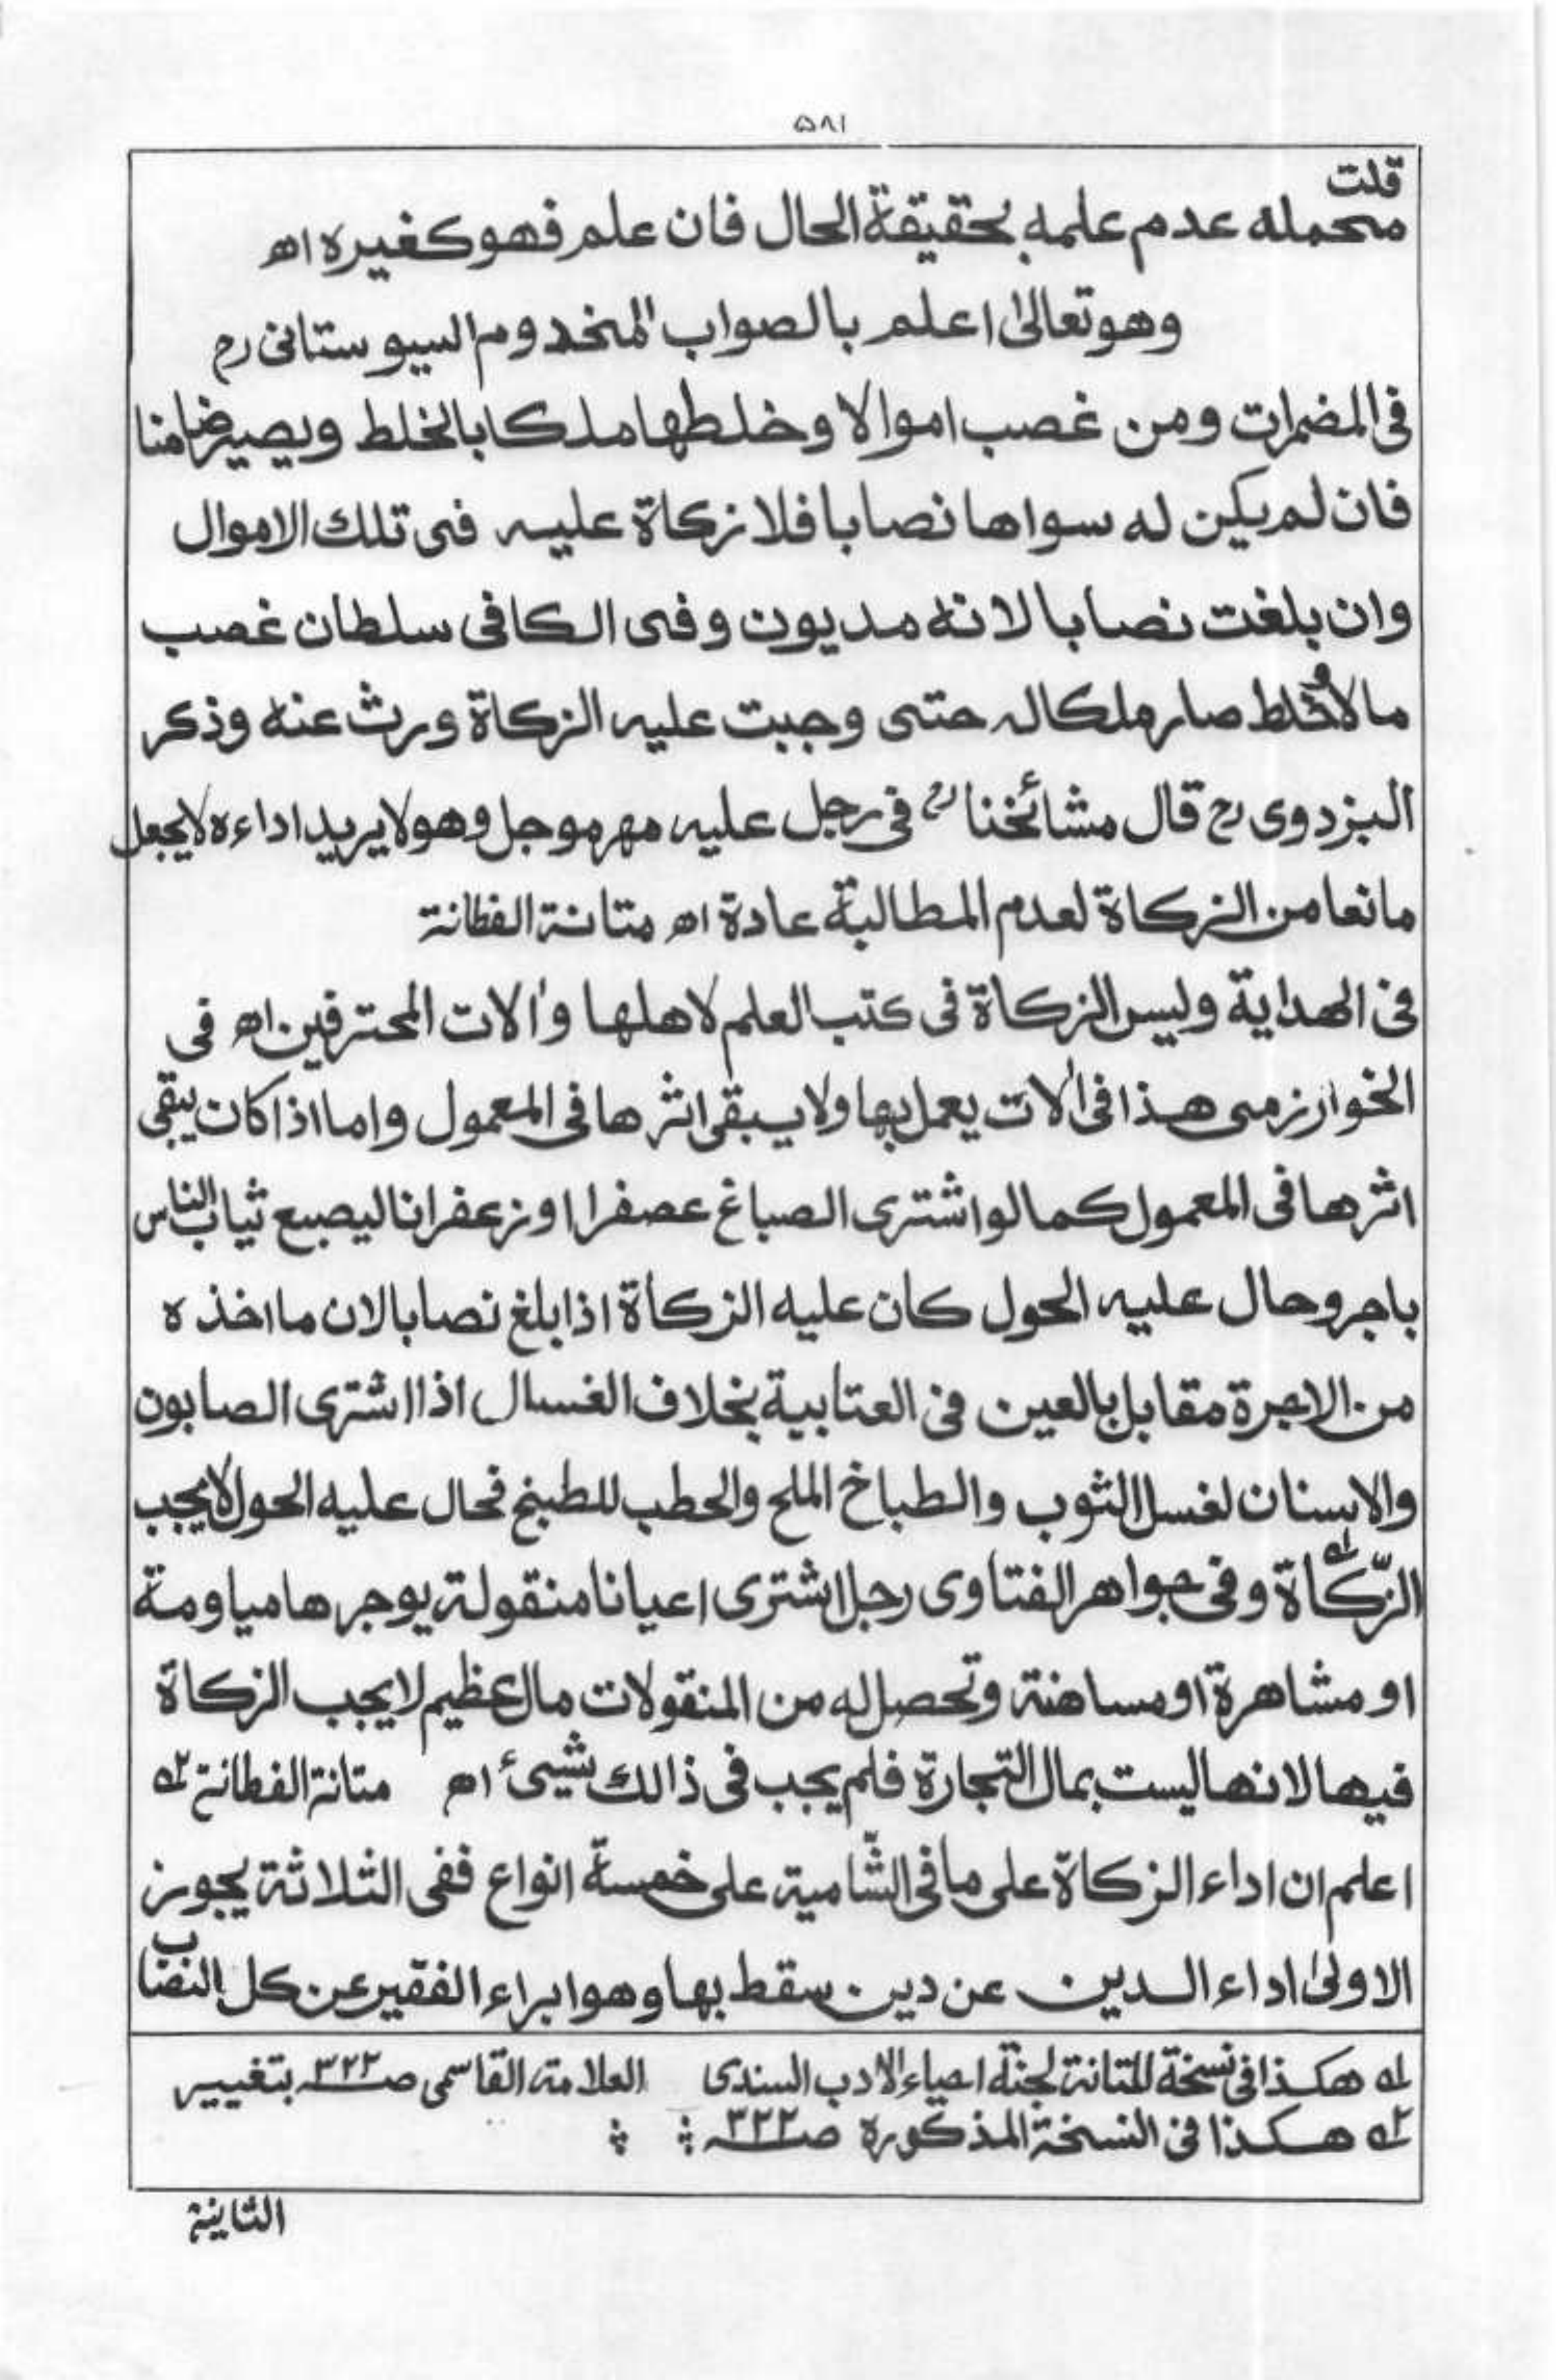 ۵۸۱
قلت
محمله عدم علمه بحقيقة الحال فان علم فهو كغيره اھ
وهو تعالىٰ اعلم بالصواب المخدوم السيوستانی رح
فی المضمرات ومن غصب اموالا وخلطها ملكا بالخلط ويصير ضامنا
فان لم يكن له سواها نصابا فلا زكاة عليه فی تلك الاموال
وان بلغت نصابا لانه مديون وفی الكافی سلطان غصب
مالا وخلط صار ملكا له حتی وجبت عليه الزكاة ورث عنه وذكر
البزدوی رح قال مشائخنا رح فی رجل عليه مهر موجل وهو لا يريد اداءه لا يجعل
مانعا من الزكاة لعدم المطالبة عادة اھ متانة الفطانة
فی الهداية وليس الزكاة فی كتب العلم لاهلها وآلات المحترفين اھ فی
الخوارزمی هذا فی آلات يعمل بها ولا يبقی اثرها فی المعمول واما اذا كان يبقی
اثرها فی المعمول كما لو اشتری الصباغ عصفرا او زعفرانا ليصبع ثياب الناس
باجر وحال عليه الحول كان عليه الزكاة اذا بلغ نصابا لان ما اخذه
من الاجرة مقابل بالعين فی العتابية بخلاف الغسال اذا اشتری الصابون
والاسنان لغسل الثوب والطباخ الملح والحطب للطبخ فحال عليه الحول لا يجب
الزّكاة ۱ه وفی جواهر الفتاوی رجل اشتری اعيانا منقولة يوجرها مياومة
او مشاهرة او مساهنة وتحصل له من المنقولات مال عظيم لا يجب الزكاة
فيها لانها ليست بمال التجارة فلم يجب فی ذالك شیئ اھ متانة الفطانة ۲ه
اعلم ان اداء الزكاة علی ما فی الشّامية علی خمسة انواع ففی الثلاثة يجوز
الاولیٰ اداء الدين عن دين سقط بها وهو ابراء الفقير عن كل النصاب
۱ه هكذا فی نسخة المتانة لجنة احياء الادب السندی العلامة القاسمی صـ۳۲۲ بتغيير
۲ه هكذا فی النسخة المذكورة صـ۳۲۲
الثانية